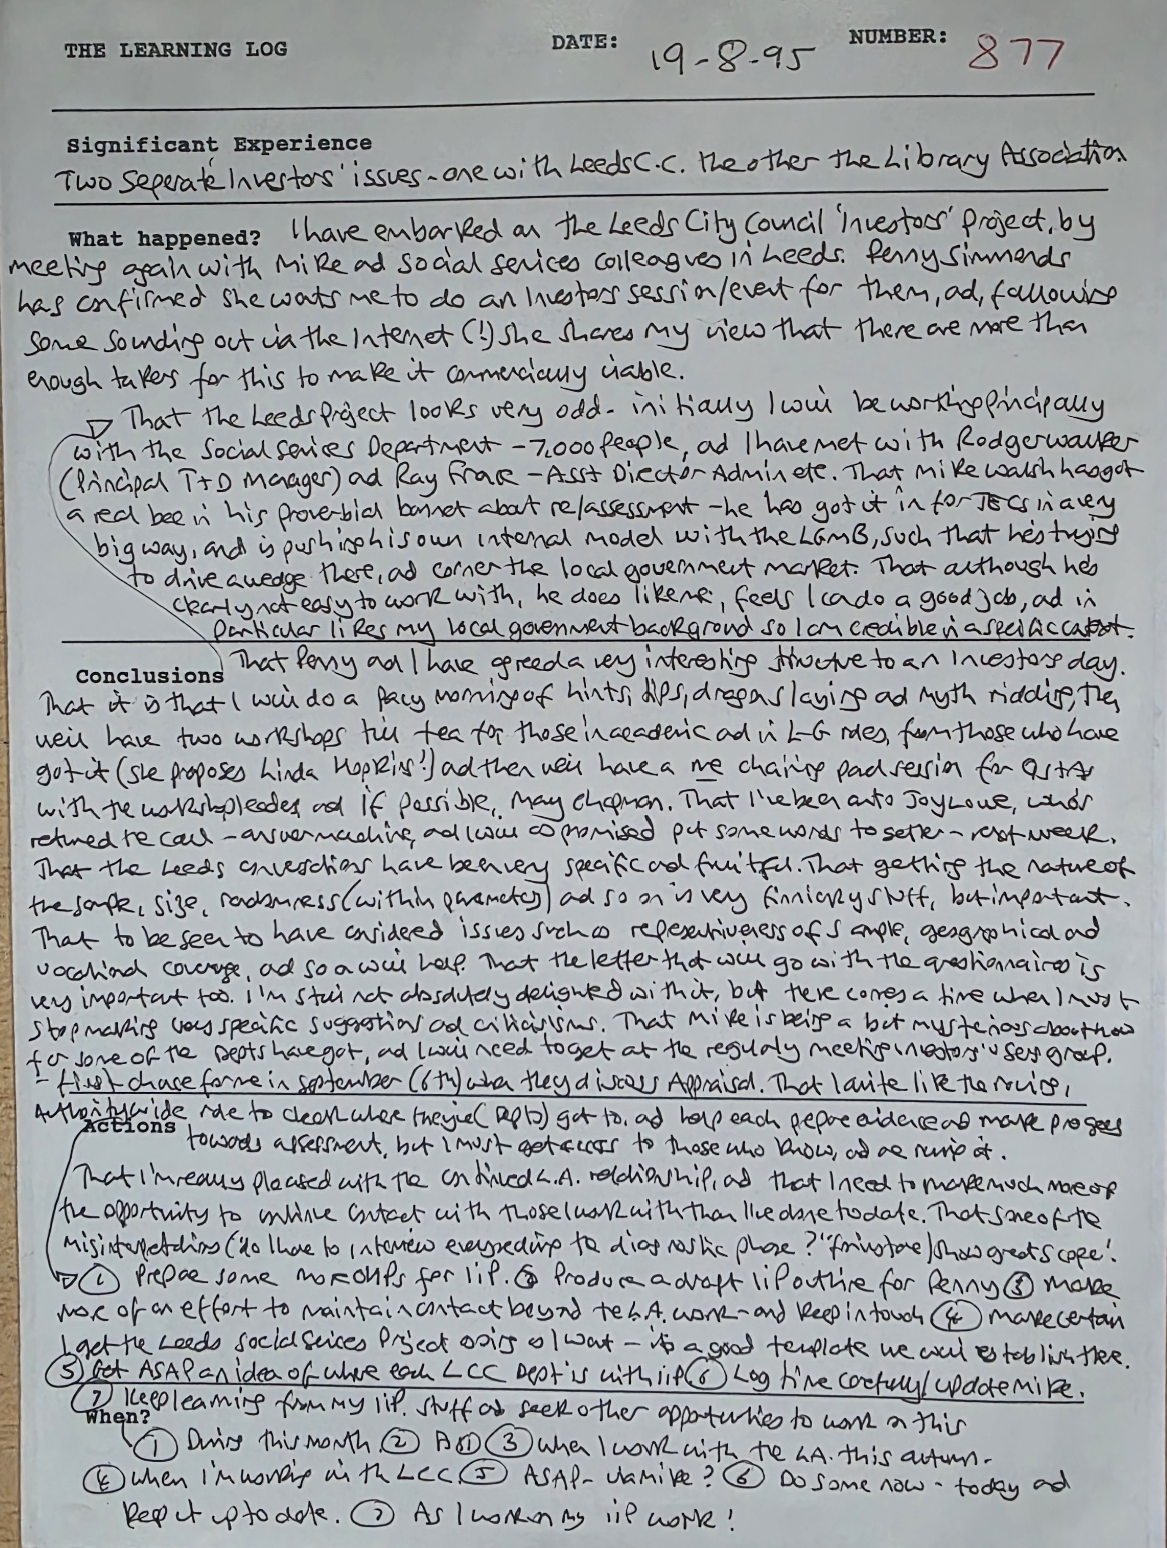 THE LEARNING LOG DATE: 19-8-95 NUMBER: 877
Significant Experience
Two seperate 'Investors' issues - one with Leeds C.C. the other the Library Association
What happened? I have embarked on the Leeds City Council 'Investors' Project, by
meeting again with Mike ad social services colleagues in Leeds. Penny Simmonds
has confirmed she wants me to do an Investors session/event for them, ad, following
some sounding out via the Internet (!) she shares my view that there are more than
enough takers for this to make it commercially viable.
That the Leeds Project looks very odd - initially I will be working principally
with the Social Services Department - 7,000 people, ad I have met with Rodger Walker
(Principal T+D Manager) ad Ray - Asst Director Admin etc. That Mike Walsh has got
a red bee in his proverbial bonnet about re/assessment - he has got it in for TECs in a very
big way, and is pushing his own internal model with the LGMB, such that he's trying
to drive a wedge there, ad corner the local government market. That although he's
clearly not easy to work with, he does like me, feels I can do a good job, ad in
particular likes my local government background so I am credible in a specific context.
Conclusions That Penny ad I have agreed a very interesting structure to an Investors day.
That it is that I will do a pacy morning of hints, tips, dragon slaying ad myth ridding, then
we'll have two workshops till tea for those in academic ad in LG roles, from those who have
got it (she proposes Linda Hopkins!) ad then we'll have a me chairing panel session for Q's + A's
with the workshop leaders ad if possible, May Chapman. That I've been onto Joy Lowe, who's
returned the call - answermachine, ad I will as promised put some words to setter - next week.
That the Leeds conversations have been very specific ad fruitful. That getting the nature of
the sample, size, randomness (within parameters) ad so on is very finnicky stuff, but important.
That to be seen to have considered issues such as representiveness of sample, geographical ad
vocational coverage, ad so on will help. That the letter that will go with the questionnaires is
very important too. I'm still not absolutely delighted with it, but there comes a time when I must
stop making very specific suggestions ad criticisms. That Mike is being a bit mysterious about how
far some of the Depts have got, ad I will need to get at the regularly meeting investors' users group.
- first chance for me in September (6th) when they discuss Appraisal. That I quite like the roving,
Authority wide role to check where they're (Depts) got to, ad help each prepare evidence ad make progress
Actions towards assessment, but I must get access to those who know, ad are running it.
That I'm really pleased with the continued L.A. relationship, ad that I need to make much more of
the opportunity to continue contact with those I work with than I've done to date. That some of the
misinterpretations ('do I have to interview everyone during the diagnostic phase?' ) show great scope!
① Prepare some more OHPs for IiP. ② Produce a draft IiP outline for Penny ③ Make
more of an effort to maintain contact beyond the L.A. work - and keep in touch ④ make certain
I get the Leeds Social Services Project going as I want - it's a good template we could establish there.
⑤ Get ASAP an idea of where each LCC Dept is with IiP ⑥ Log time carefully/update Mike.
⑦ Keep learning from my IiP. stuff ad seek other opportunities to work on this
When?
① During this month ② As ① ③ When I work with the LA. this autumn -
④ When I'm working with LCC. ⑤ ASAP - via Mike? ⑥ Do some now - today ad
keep it up to date. ⑦ As I work on my IiP work!